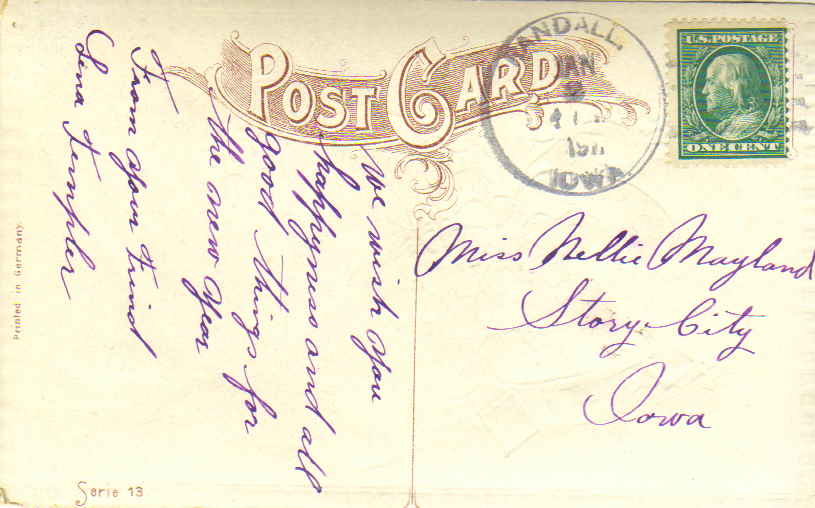 POST CARD
RANDALL,
JAN
IOWA
U.S. POSTAGE
ONE CENT
We wish you
happyness and all
good things for
the new year
From your Frind
Lena Templer
Miss Nellie Mayland
Story City
Iowa
Printed in Germany.
Serie 13